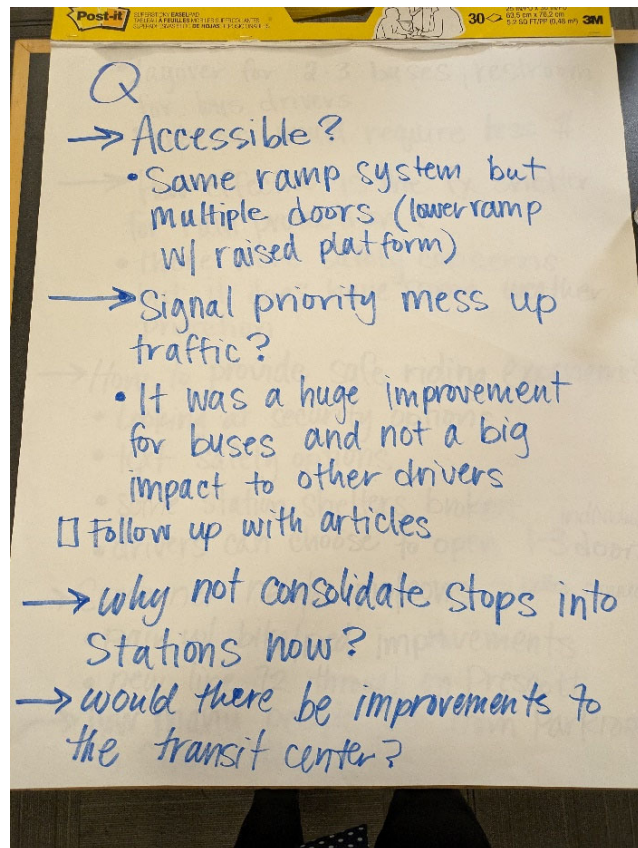 Post-it
SUPERSTICKY EASEL PAD
30
63.5 cm x 76.2 cm
3M
Q
→ Accessible?
• Same ramp system but
multiple doors (lower ramp
w/ raised platform)
→ Signal priority mess up
traffic?
• It was a huge improvement
for buses and not a big
impact to other drivers
☐ Follow up with articles
→ why not consolidate stops into
stations now?
→ would there be improvements to
the transit center?